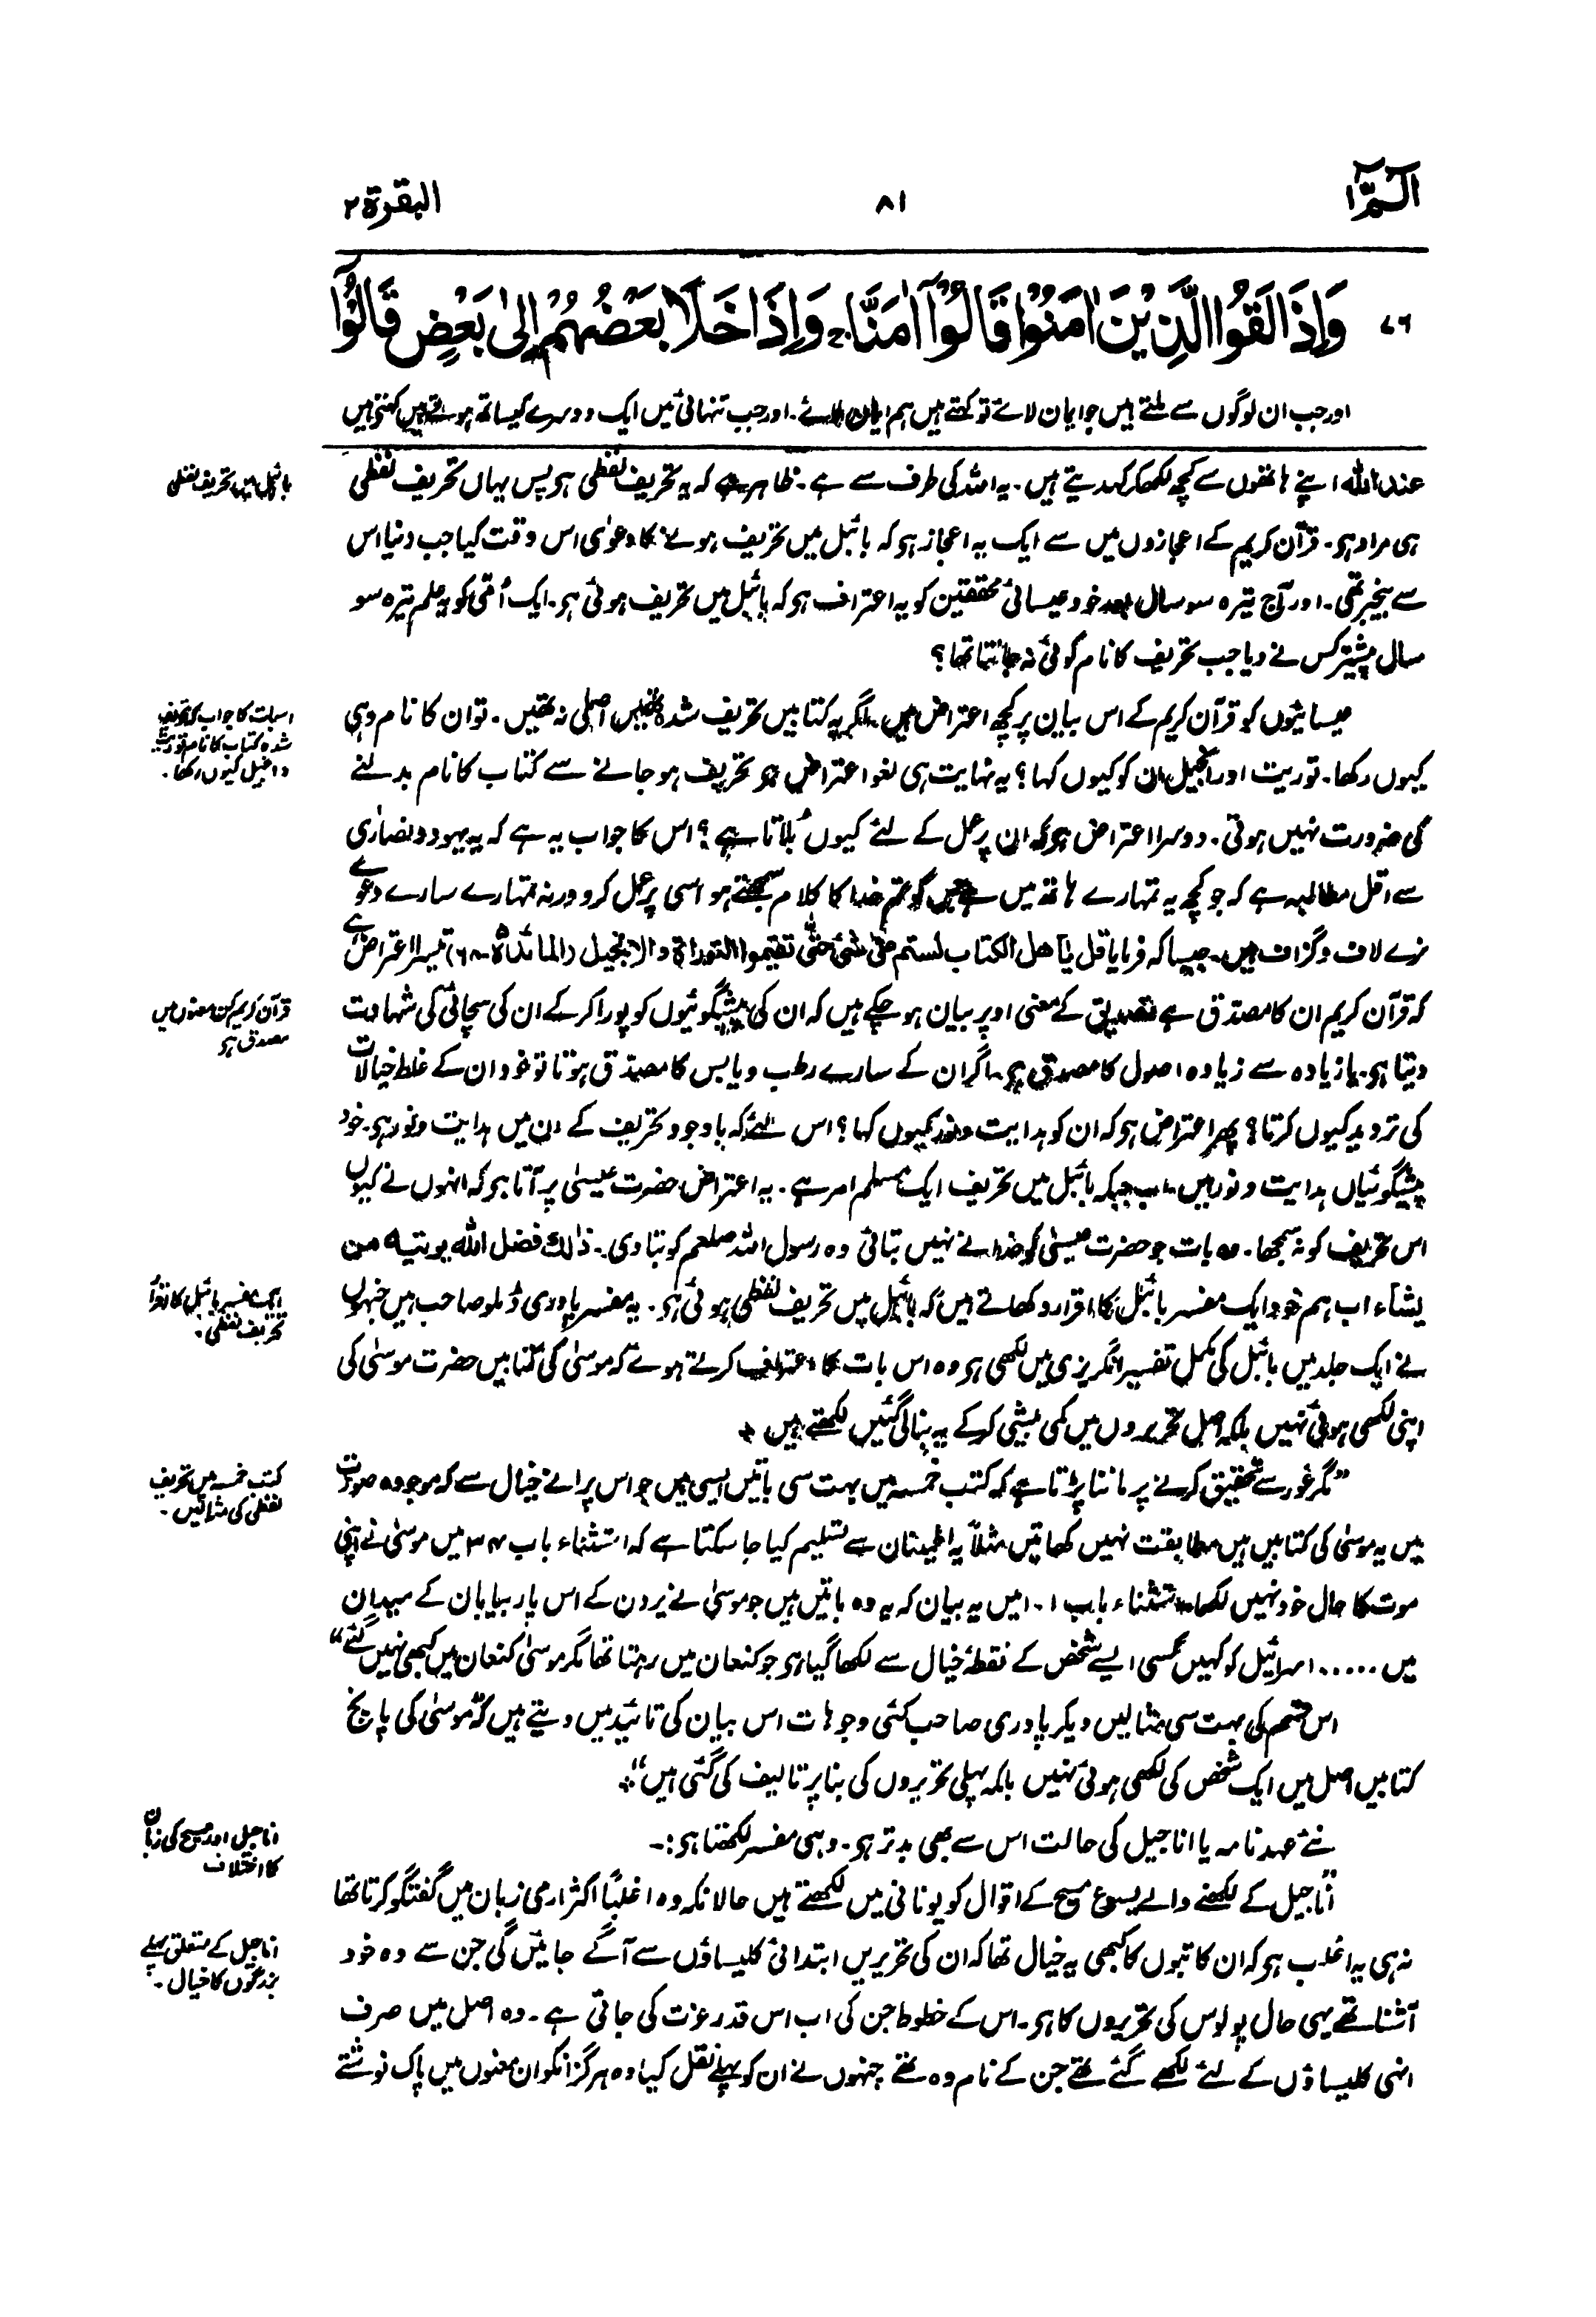 الٓمّٓ ۱
۸۱
البقرة ۲
۷۶ وَاِذَا لَقُوا الَّذِيْنَ اٰمَنُوْا قَالُوْٓا اٰمَنَّا ۚ وَاِذَا خَلَا بَعْضُهُمْ اِلٰى بَعْضٍ قَالُوْٓا
اور جب ان لوگوں سے ملتے ہیں جو ایمان لائے تو کہتے ہیں ہم ایمان لائے۔ اور جب تنہائی میں ایک دوسرے کیساتھ ہوتے ہیں کہتے ہیں
عند الله اپنے ہاتھوں سے کچھ لکھکر کہدیتے ہیں۔ یہ اللہ کی طرف سے ہے۔ ظاہر ہے کہ یہ تحریف لفظی ہی ہو پس یہاں تحریف لفظی
بائبل میں تحریف لفظی
ہی مراد ہو۔ قرآن کریم کے اعجازوں میں سے ایک یہ اعجاز ہو کہ بائبل میں تحریف ہونے کا دعوٰی اس وقت کیا جب دنیا اس
سے بیخبر تھی۔ اور آج تیرہ سو سال بعد خود عیسائی محققین کو یہ اعتراف ہو کہ بائبل میں تحریف ہوئی ہو۔ ایک اُمّی کو یہ علم تیرہ سو
سال پیشتر کس نے دیا جب تحریف کا نام کوئی نہ جانتا تھا؟
عیسائیوں کو قرآن کریم کے اس بیان پر کچھ اعتراض ہیں۔ اگر یہ کتابیں تحریف شدہ تھیں اصلی نہ تھیں۔ تو ان کا نام وہی
اسبات کا جواب کہ تحریف
شدہ کتاب کا نام توریت
و انجیل کیوں رکھا۔
کیوں رکھا۔ توریت اور انجیل ان کو کیوں کہا؟ یہ نہایت ہی لغو اعتراض ہو تحریف ہو جانے سے کتاب کا نام بدلنے
کی ضرورت نہیں ہوتی۔ دوسرا اعتراض ہو کہ ان پر عمل کے لئے کیوں بلاتا ہے؟ اس کا جواب یہ ہے کہ یہ یہود و نصارٰی
سے اقل مطالبہ ہے کہ جو کچھ یہ تمہارے ہاتھ میں ہے جس کو تم خدا کا کلام سمجھتے ہو اسی پر عمل کرو ورنہ تمہارے سارے دعوے
نرے لاف و گزاف ہیں۔ جیسا کہ فرمایا قل يآ اهل الكتاب لستم على شىء حتّٰى تقيموا التوراة والانجيل (المائدة-۶۸) تیسرا اعتراض ہے
کہ قرآن کریم ان کا مصدّق ہے تصدیق کے معنی اوپر بیان ہو چکے ہیں کہ ان کی پیشگوئیوں کو پورا کر کے ان کی سچائی کی شہادت
قرآن کریم کن معنوں میں
مصدق ہو
دیتا ہو۔ یا زیادہ سے زیادہ اصول کا مصدق ہو۔ اگر ان کے سارے رطب و یابس کا مصدّق ہوتا تو خود ان کے غلط خیالات
کی تردید کیوں کرتا؟ پھر اعتراض ہو کہ ان کو ہدایت و نور کیوں کہا؟ اس لئے کہ باوجود تحریف کے ان میں ہدایت و نور ہو۔ خود
پیشگوئیاں ہدایت و نور ہیں۔ اب جبکہ بائبل میں تحریف ایک مسلم امر ہے۔ یہ اعتراض حضرت عیسٰی پر آتا ہو کہ انہوں نے کیوں
اس تحریف کو نہ سمجھا۔ وہ بات جو حضرت عیسٰی کو خدا نے نہیں بتائی وہ رسول اللہ صلعم کو بتا دی۔ ذٰلك فضل الله يوتيه من
يشآء اب ہم خود ایک مفسر بائبل کا اقرار دکھاتے ہیں کہ بائبل میں تحریف لفظی ہوئی ہو۔ یہ مفسر پادری ڈملو صاحب ہیں جنہوں
ایک مفسر بائبل کا اقرار
تحریف لفظی۔
نے ایک جلد میں بائبل کی مکمل تفسیر انگریزی میں لکھی ہو وہ اس بات کا اعتراف کرتے ہوئے کہ موسٰی کی کتابیں حضرت موسٰی کی
اپنی لکھی ہوئی نہیں بلکہ اصل تحریروں میں کمی بیشی کر کے یہ بنالی گئیں لکھتے ہیں ٭
”مگر غور سے تحقیق کرنے پر ماننا پڑتا ہے کہ کتب خمسہ میں بہت سی باتیں ایسی ہیں جو اس پرانے خیال سے کہ موجودہ صورت
کتب خمسہ میں تحریف
لفظی کی مثالیں۔
میں یہ موسٰی کی کتابیں ہیں مطابقت نہیں کھاتیں مثلاً یہ اطمینان سے تسلیم کیا جا سکتا ہے کہ استثناء باب ۳۴ میں موسٰی نے اپنی
موت کا حال خود نہیں لکھا۔ استثناء باب ۱-۱ میں یہ بیان کہ یہ وہ باتیں ہیں جو موسٰی نے یردن کے اس پار بیابان کے میدان
میں ..... اسرائیل کو کہیں کسی ایسے شخص کے نقطۂ خیال سے لکھا گیا ہو جو کنعان میں رہتا تھا مگر موسٰی کنعان میں کبھی نہیں گئے“
اس قسم کی بہت سی مثالیں دیکر پادری صاحب کئی وجوہات اس بیان کی تائید میں دیتے ہیں کہ ”موسٰی کی پانچ
کتابیں اصل میں ایک شخص کی لکھی ہوئی نہیں بلکہ پہلی تحریروں کی بنا پر تالیف کی گئی ہیں“ ٭
نئے عہد نامہ یا اناجیل کی حالت اس سے بھی بدتر ہو۔ وہی مفسر لکھتا ہو:۔
اناجیل اور مسیح کی زبان
کا اختلاف
”اناجیل کے لکھنے والے یسوع مسیح کے اقوال کو یونانی میں لکھتے ہیں حالانکہ وہ اغلباً اکثر ارمی زبان میں گفتگو کرتا تھا
نہ ہی یہ اغلب ہو کہ ان کاتبوں کا کبھی یہ خیال تھا کہ ان کی تحریریں ابتدائی کلیساؤں سے آگے جائیں گی جن سے وہ خود
اناجیل کے متعلق پہلے
بزرگوں کا خیال۔
آشنا تھے یہی حال پولوس کی تحریروں کا ہو۔ اس کے خطوط جن کی اب اس قدر عزت کی جاتی ہے۔ وہ اصل میں صرف
انہی کلیساؤں کے لئے لکھے گئے تھے جن کے نام وہ تھے جنہوں نے ان کو پہلے نقل کیا وہ ہرگز انکو ان معنوں میں پاک نوشتے